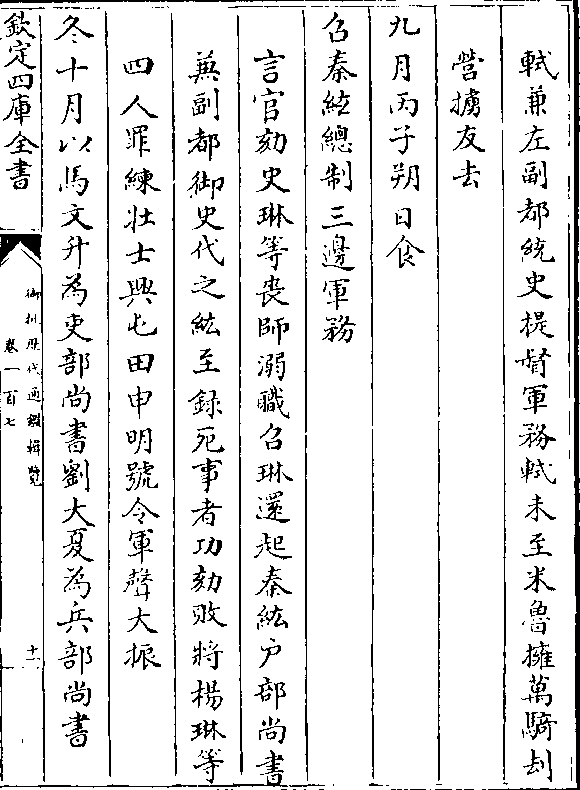 軾兼左副都統史提督軍務軾未至米魯擁萬騎刦
營擄友去
九月丙子朔日食
召秦紘總制三邊軍務
言官劾史琳等喪師溺職召琳還起秦紘户部尚書
兼副都御史代之紘至録死事者功劾敗將楊琳等
四人罪練壯士興屯田申明號令軍聲大振
冬十月以馬文升為吏部尚書劉大夏為兵部尚書
欽定四庫全書
御批歴代通鑑輯覽
卷一百七
十一